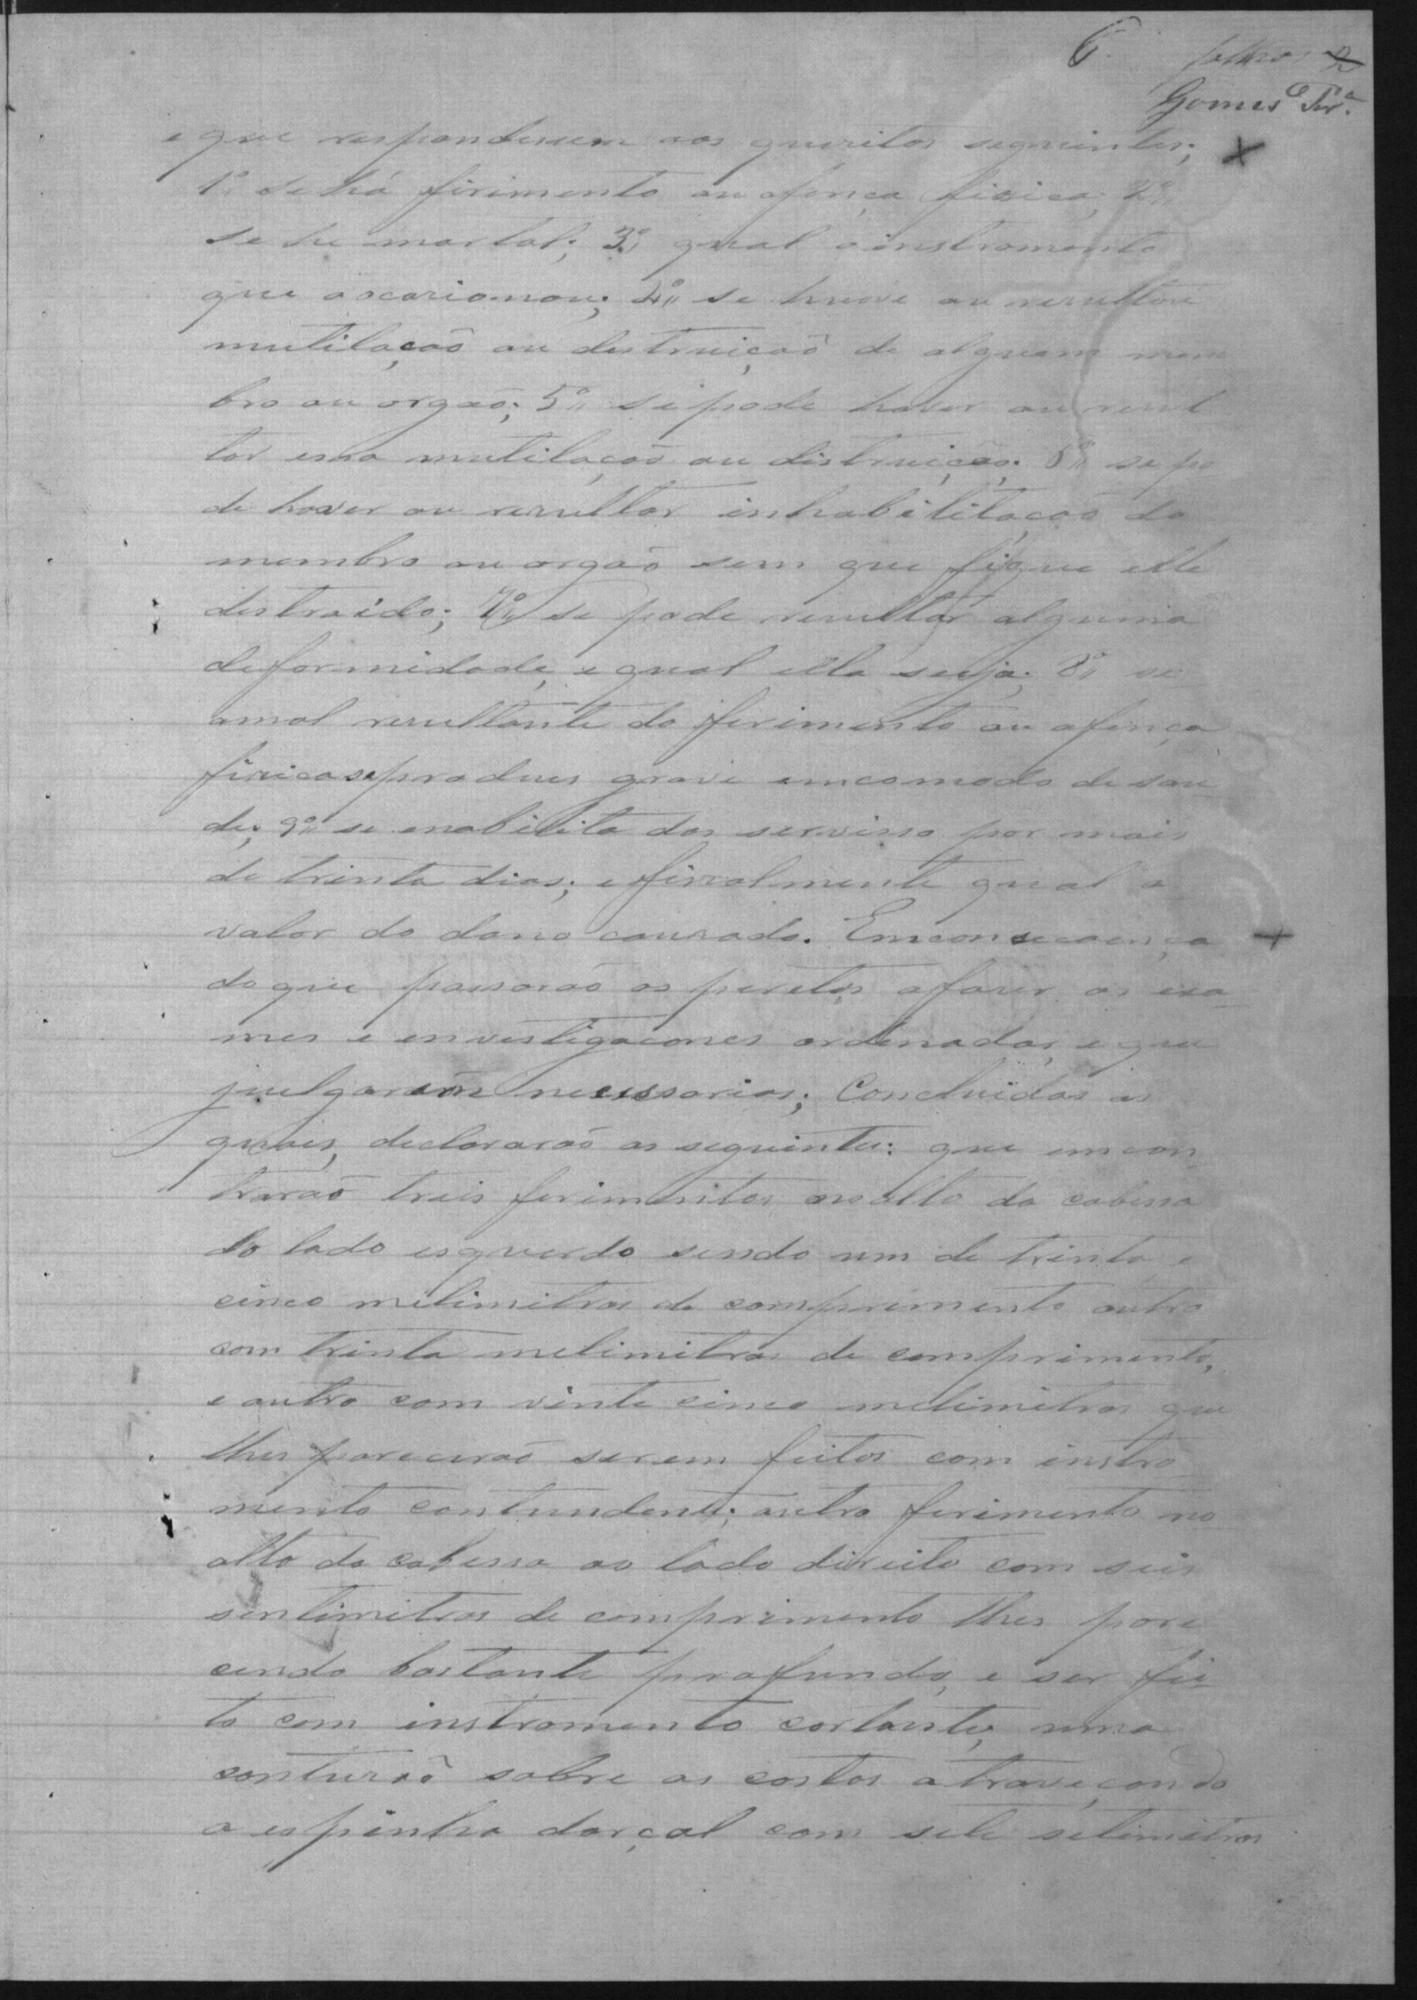 6. folhas 2
Gomes Fer.ª
e que respondessem aos quezitos seguintes;
1º se há firimento ou ofença fizica; 2º,,
se he mortal; 3º,, qual o instromento
que o ocazionou; 4º,, se huove ou rezultou
mutilação ou destruição de alguem mem
bro ou orgão; 5º,, se pode haver ou rezul
tar essa mutilação ou distruição; 6º,, se po
de haver ou rezultar inhabilitação do
membro ou orgão sem que fique elle
distroido; 7º,, se pode rezultar alguma
deformidade, e qual ella seija; 8º,, se
o mal rezultante do ferimento ou ofença
fizica se produes grave emcomodo de sau
de; 9º,, se enabilita dos servisso por mais
de trinta dias; e finalmente qual o
valor do dano cauzado. Em consecoença
do que passarão os peretos a fazer os exa
mes e envestigacones ordenadas, e que
julgarão necessarias; Concluidas as
quaes, declararão os seguinte: que emcon
trarão treis ferimentos no alto da cabessa
do lado esquerdo sendo um de trinta e
cinco melimitros de comprimento outro
com trinta melimitros de comprimento,
e outro com vinte cinco melimitros que
lhes parecerão serem feitos com instro
mento contundente; outro ferimento no
alto da cabessa ao lado direito com seis
sentimitros de comprimento lhes pare
cendo bastante profundo, e ser fei
to com instromento cortante, uma
contuzão sobre as costas atraveçando
a espinha dorçal com sete setimitros